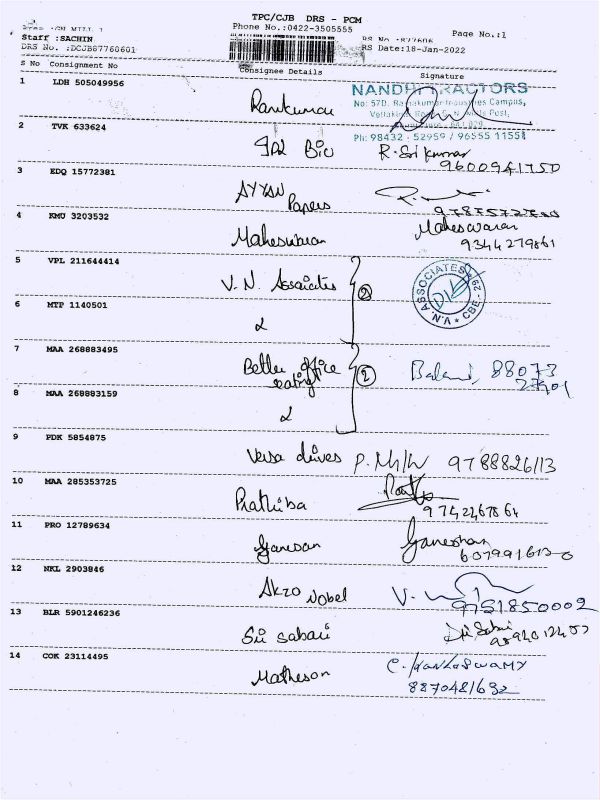 TPC/CJB DRS - PCM
Phone No.:0422-3505555
Page No.:1
Staff :SACHIN
DRS No. :DCJB87760601
RS Date:18-Jan-2022
S No Consignment No Consignee Details Signature
1 LDH 505049956 Ramkumar
NANDHI TRACTORS
No: 57D, Ramakumar Industries Campus,
Ph: 98432 - 52959 / 96555 11558
2 TVK 633624 Bio R. Sri kumar
9600941750
3 EDQ 15772381 AYYAN
Papers
4 KMU 3203532 Maheswaran Maheswaran
9344279861
5 VPL 211644414 V. N. Associates 2
ASSOCIATES * CBE - * V.N.
6 MTP 1140501 2
7 MAA 268883495 Better office
seating 2
Balani, 88073
27901
8 MAA 268883159 2
9 PDK 5854875 Versa drives 9788826113
10 MAA 285353725 Prathiba
11 PRO 12789634 Ganesan Ganeshan
12 NKL 2903846 Akzo Nobel
9751850002
13 BLR 5901246236 Sri sabari Sri Sabari
14 COK 23114495 Matheson
8870481692